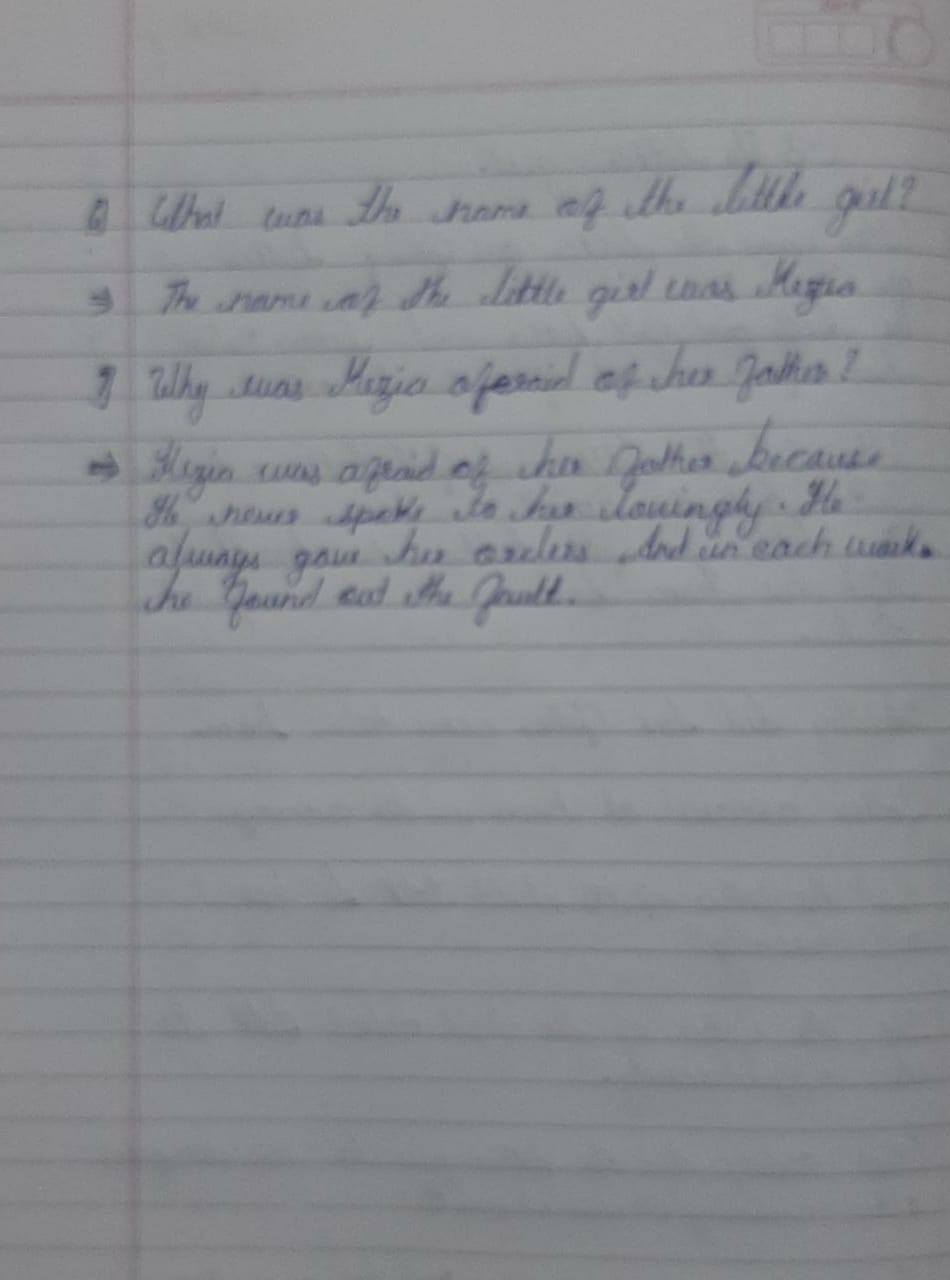 Q What was the name of the little girl?
⇒ The name of the little girl was Kezia
Q Why was Kezia afraid of her father?
⇒ Kezia was afraid of her father because
He never spoke to her lovingly. He
always gave her orders. And in each work.
he found out the fault.